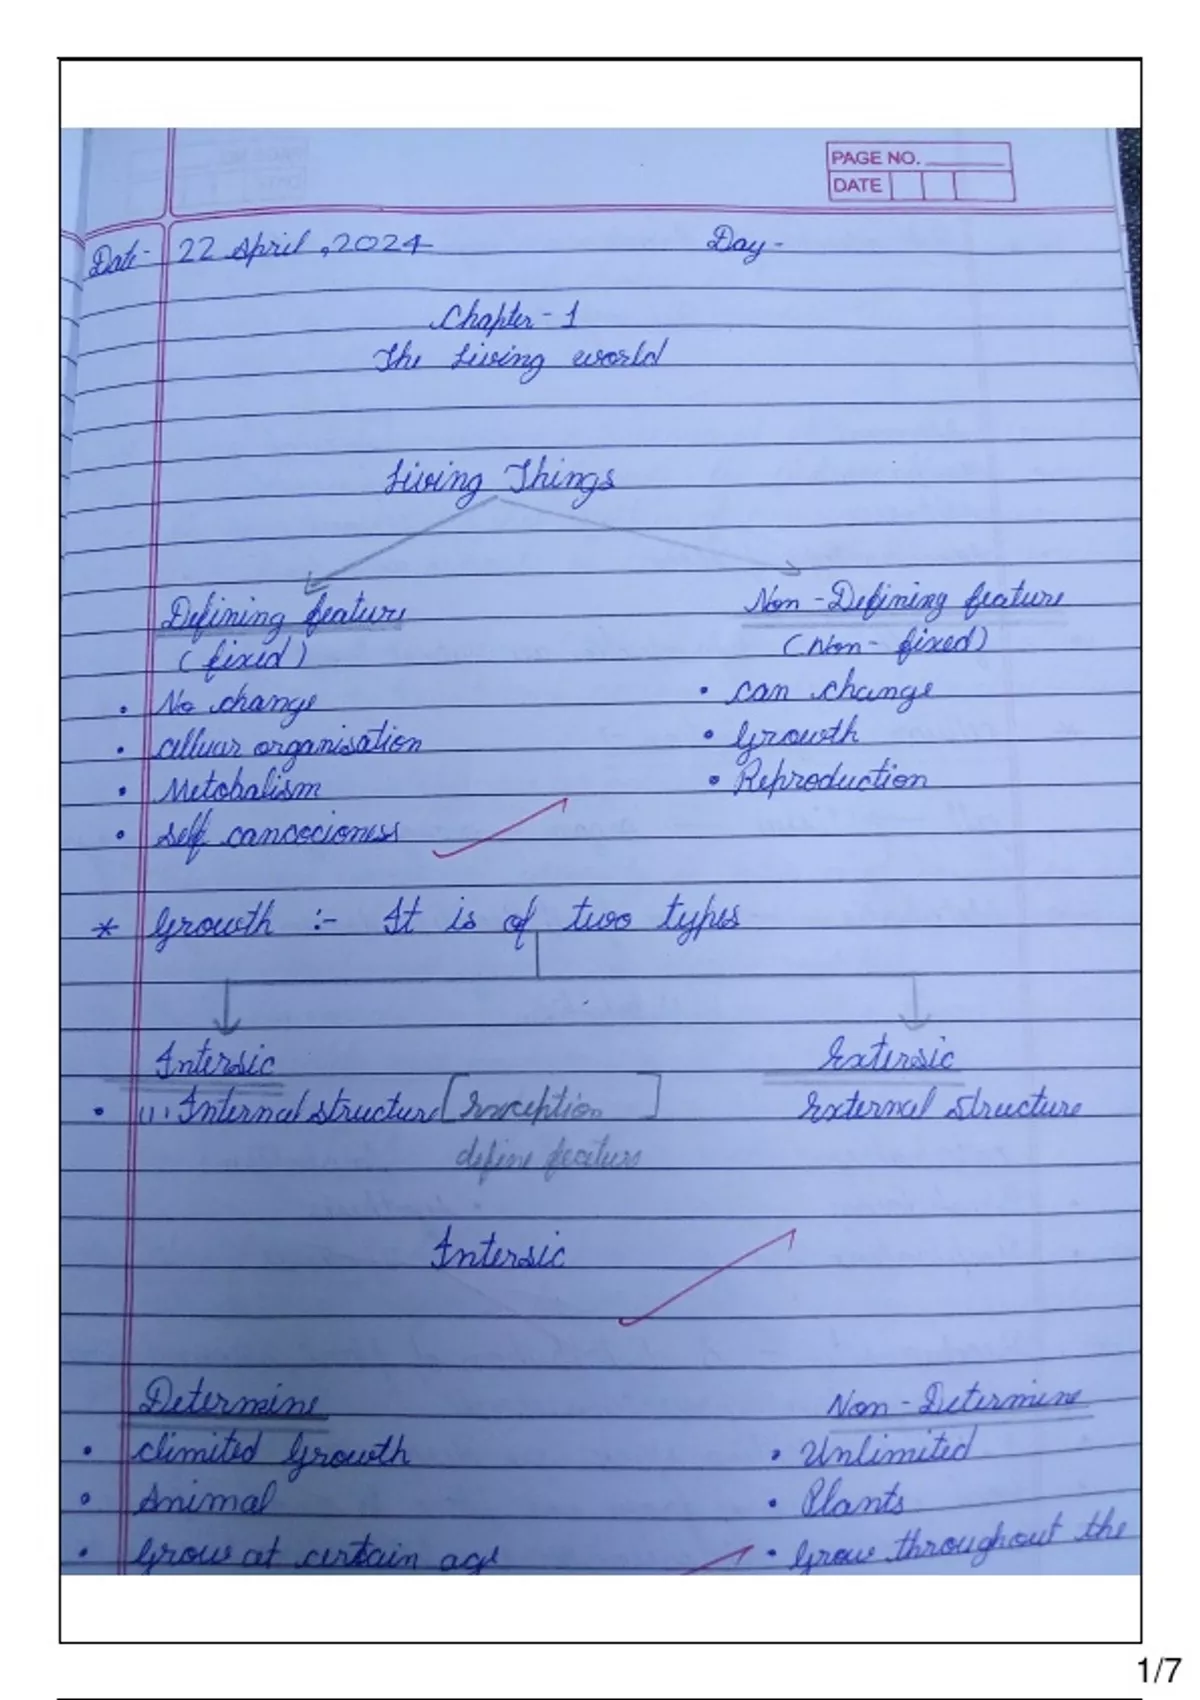 PAGE NO.
DATE
Date- 22 April, 2024 Day-
Chapter - 1
The Living world
Living Things
Defining feature Non - Defining feature
(fixed) (Non - fixed)
• No change • can change
• celluar organisation • Growth
• Metobalism • Reproduction
• Self cancocioness
* Growth :- It is of two types
Intersic Extersic
• (1) Internal structure [Exception] External structure
define feature
Intersic
Determine Non - Determine
• climited Growth • Unlimited
• Animal • Plants
• Grow at certain age • Grow throughout the
1/7